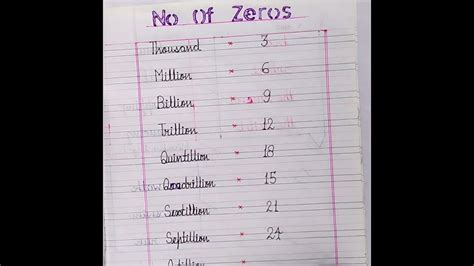 No Of Zeros
Thousand * 3
Million * 6
Billion * 9
Trillion * 12
Quintillion * 18
Quadrillion * 15
Sextillion * 21
Septillion * 24